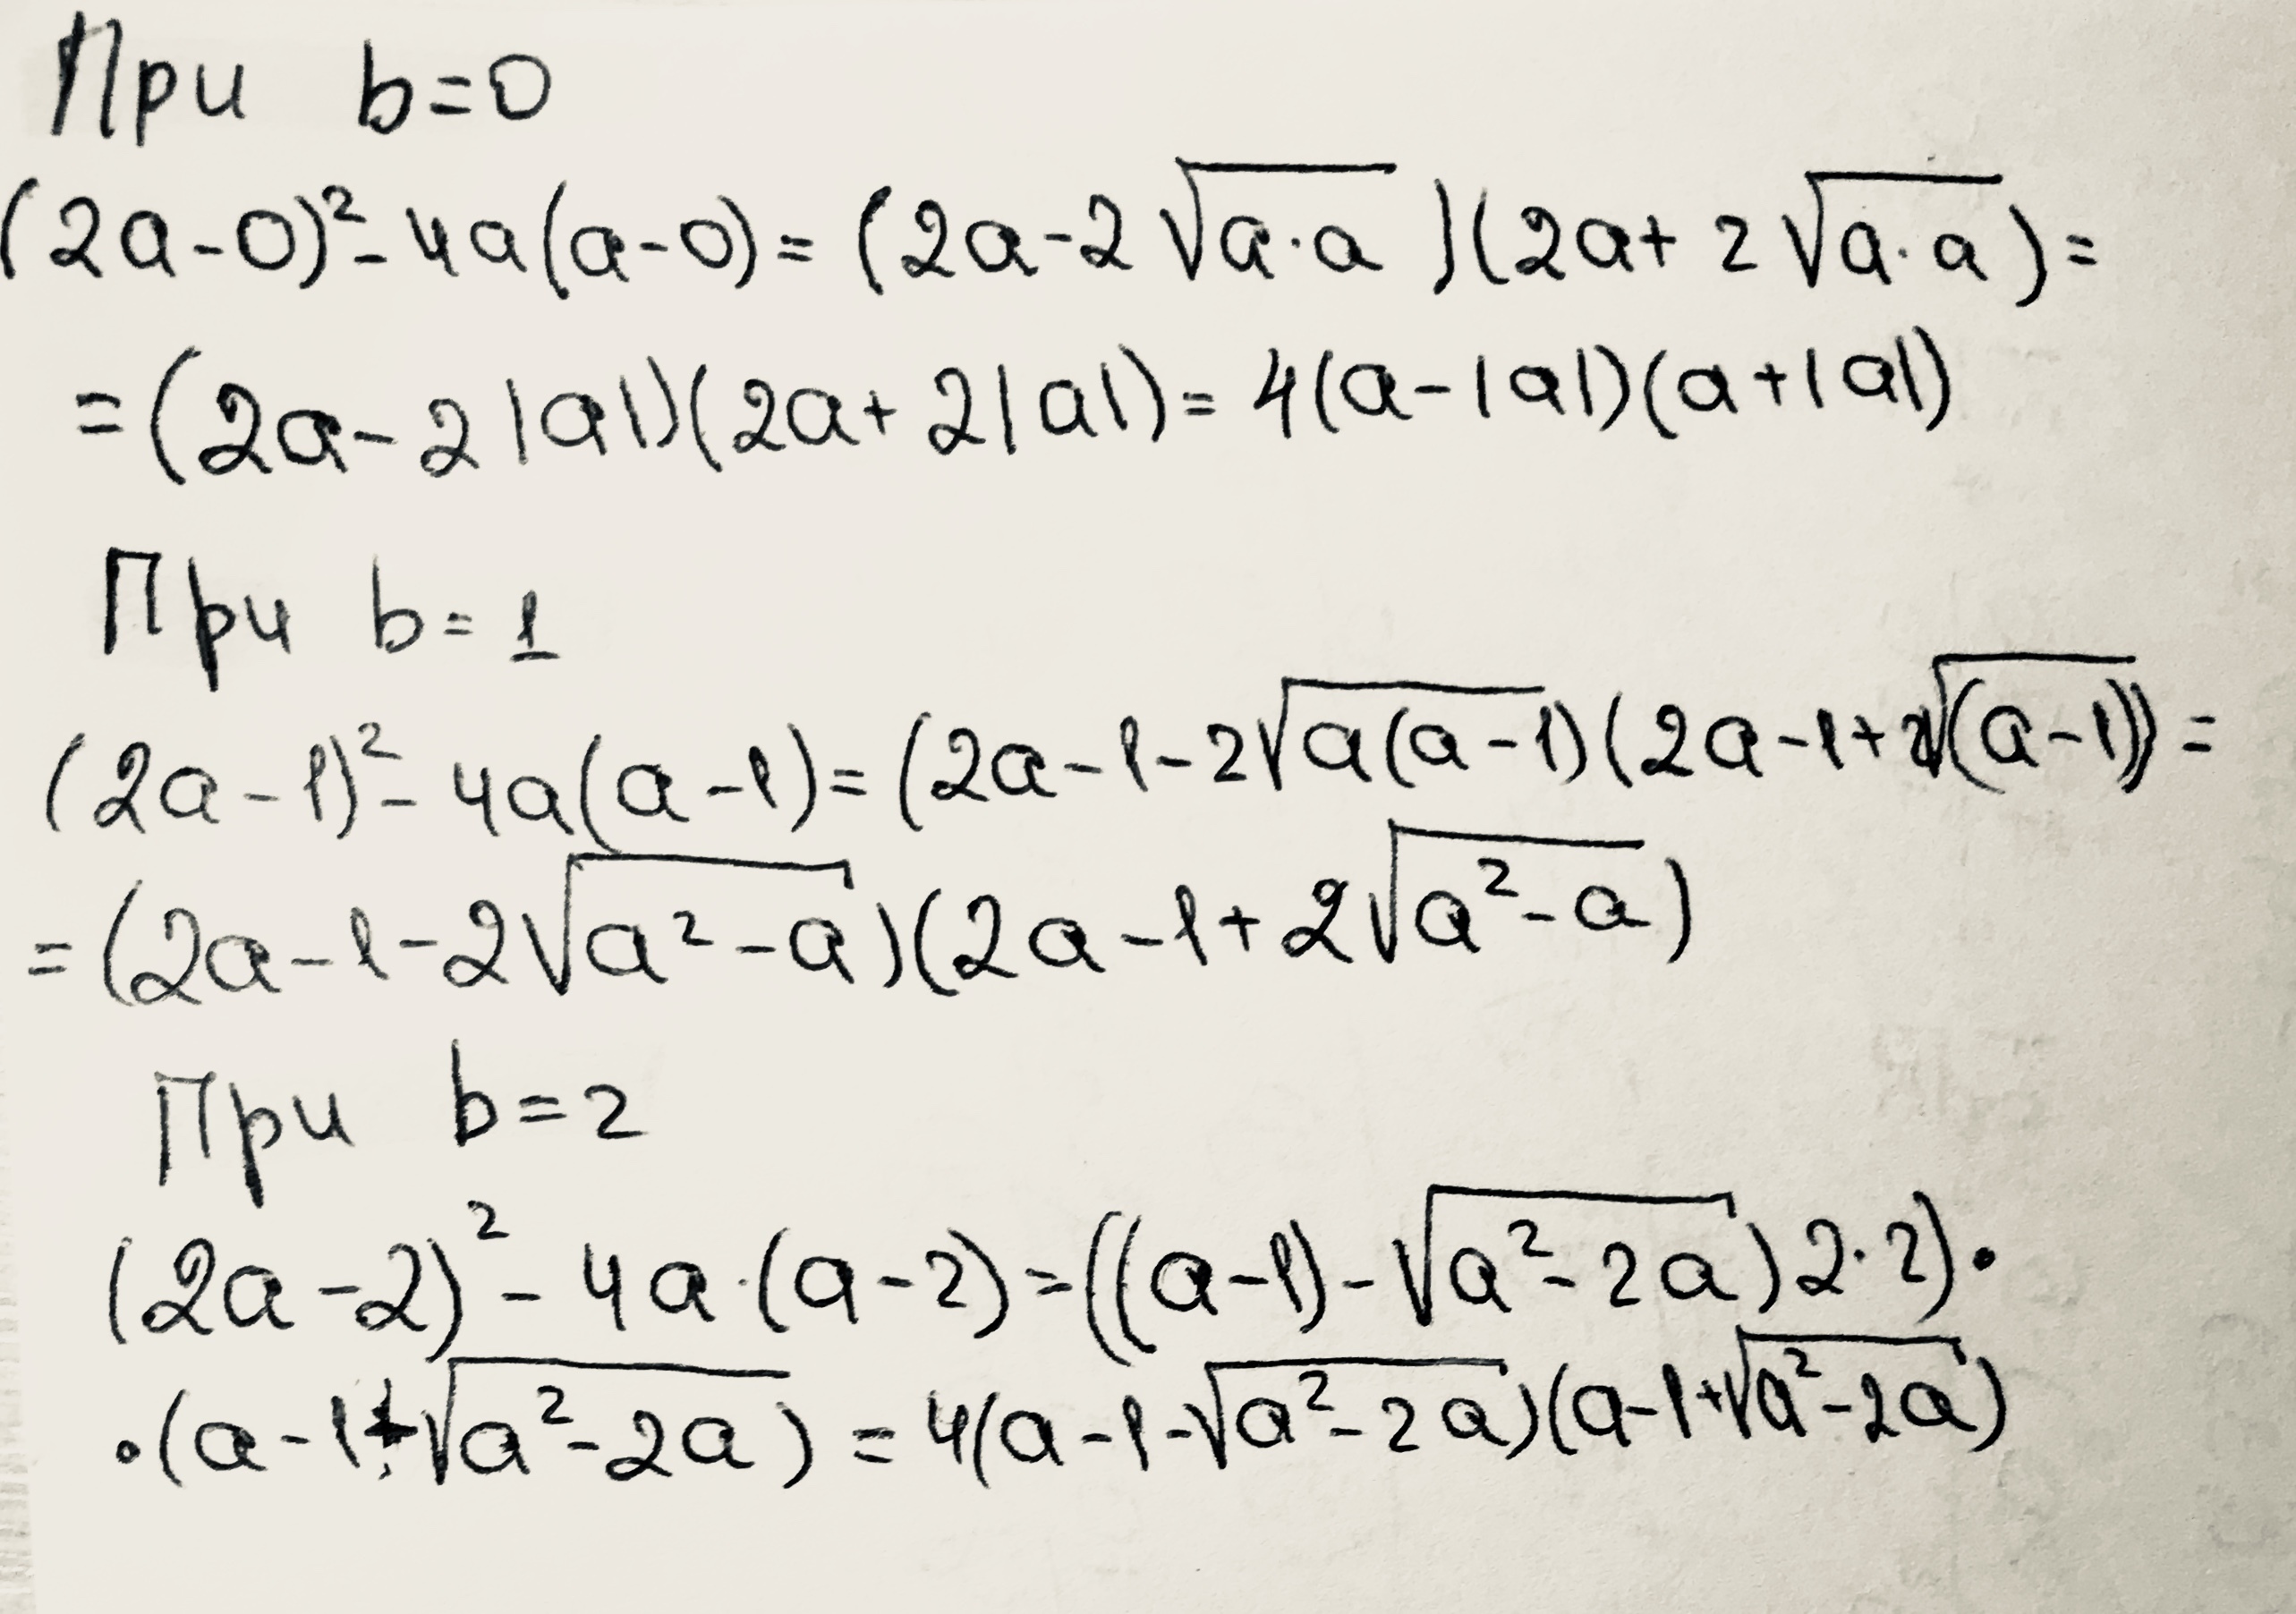 При b=0
(2a-0)²-4a(a-0)=(2a-2√(a·a))(2a+2√(a·a))=
=(2a-2|a|)(2a+2|a|)=4(a-|a|)(a+|a|)
При b=1
(2a-1)²-4a(a-1)=(2a-1-2√(a(a-1)))(2a-1+2√((a-1)))=
=(2a-1-2√(a²-a))(2a-1+2√(a²-a))
При b=2
(2a-2)²-4a·(a-2)=((a-1)-√(a²-2a))2·2)·
·(a-1+√(a²-2a))=4(a-1-√(a²-2a))(a-1+√(a²-2a))